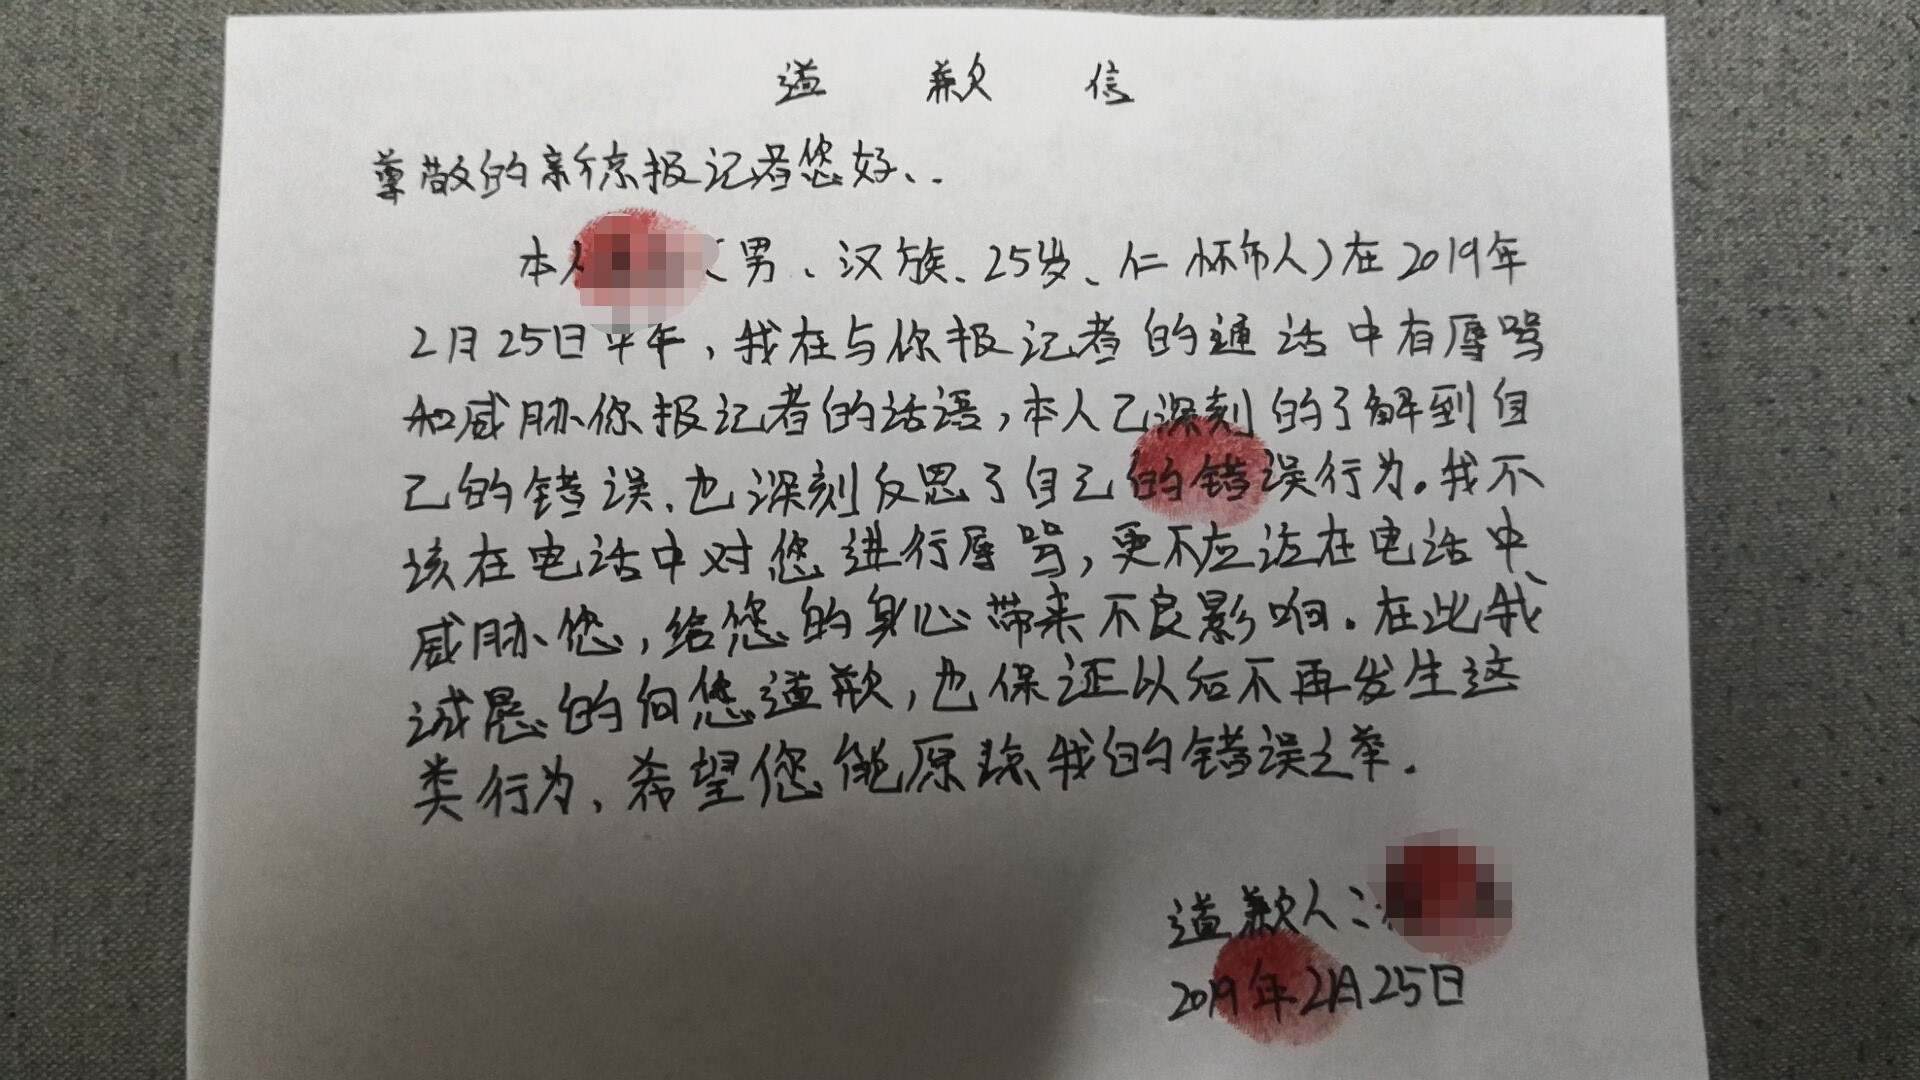 道 歉 信
尊敬的新京报记者您好、.
本人 (男、汉族、25岁、仁怀市人)在2019年
2月25日 午,我在与你报记者的通话中有辱骂
和威胁你报记者的话语,本人已深刻的了解到自
己的错误、也深刻反思了自己的错误行为。我不
该在电话中对您进行辱骂,更不应该在电话中
威胁您,给您的身心带来不良影响。在此我
诚恳的向您道歉,也保证以后不再发生这
类行为、希望您能原谅我的错误之举.
道歉人:
2019年2月25日